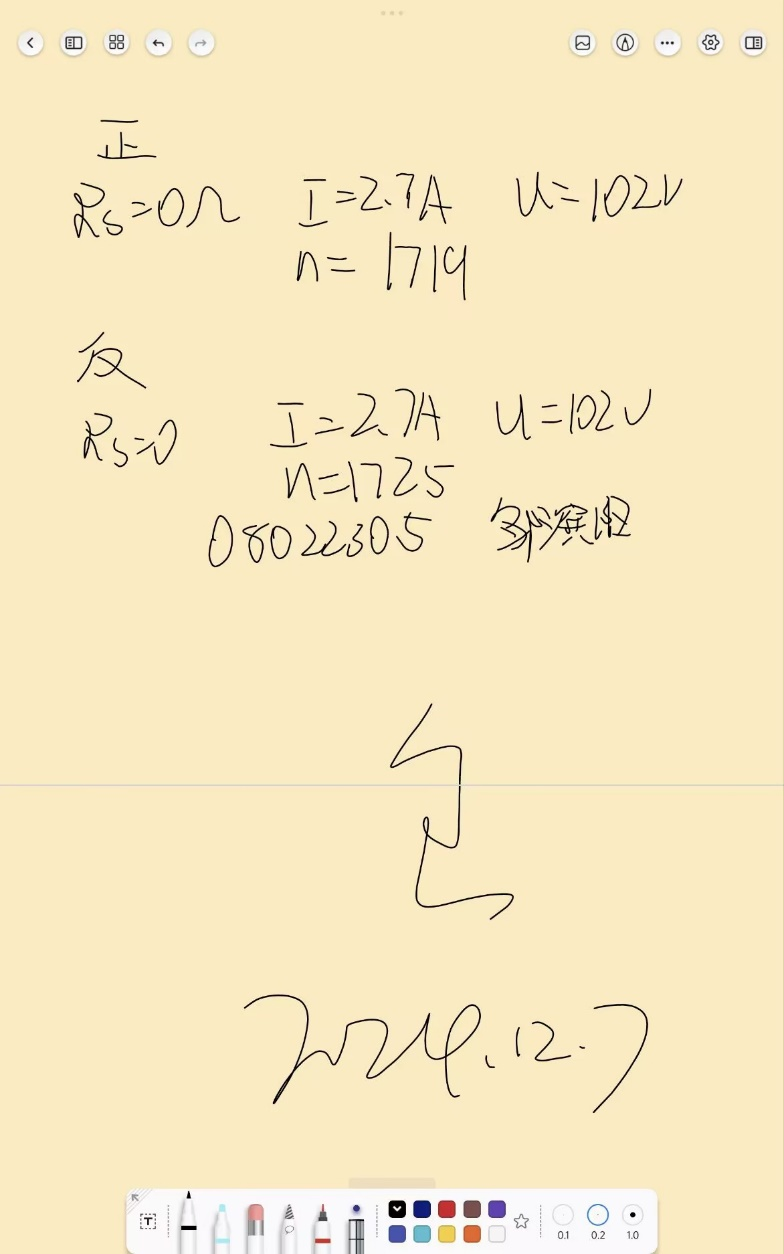 正
Rs=0Ω I=2.7A U=102V
n=1719
反
Rs=0 I=2.7A U=102V
n=1725
08022305 邹
2024.12.7
0.1 0.2 1.0